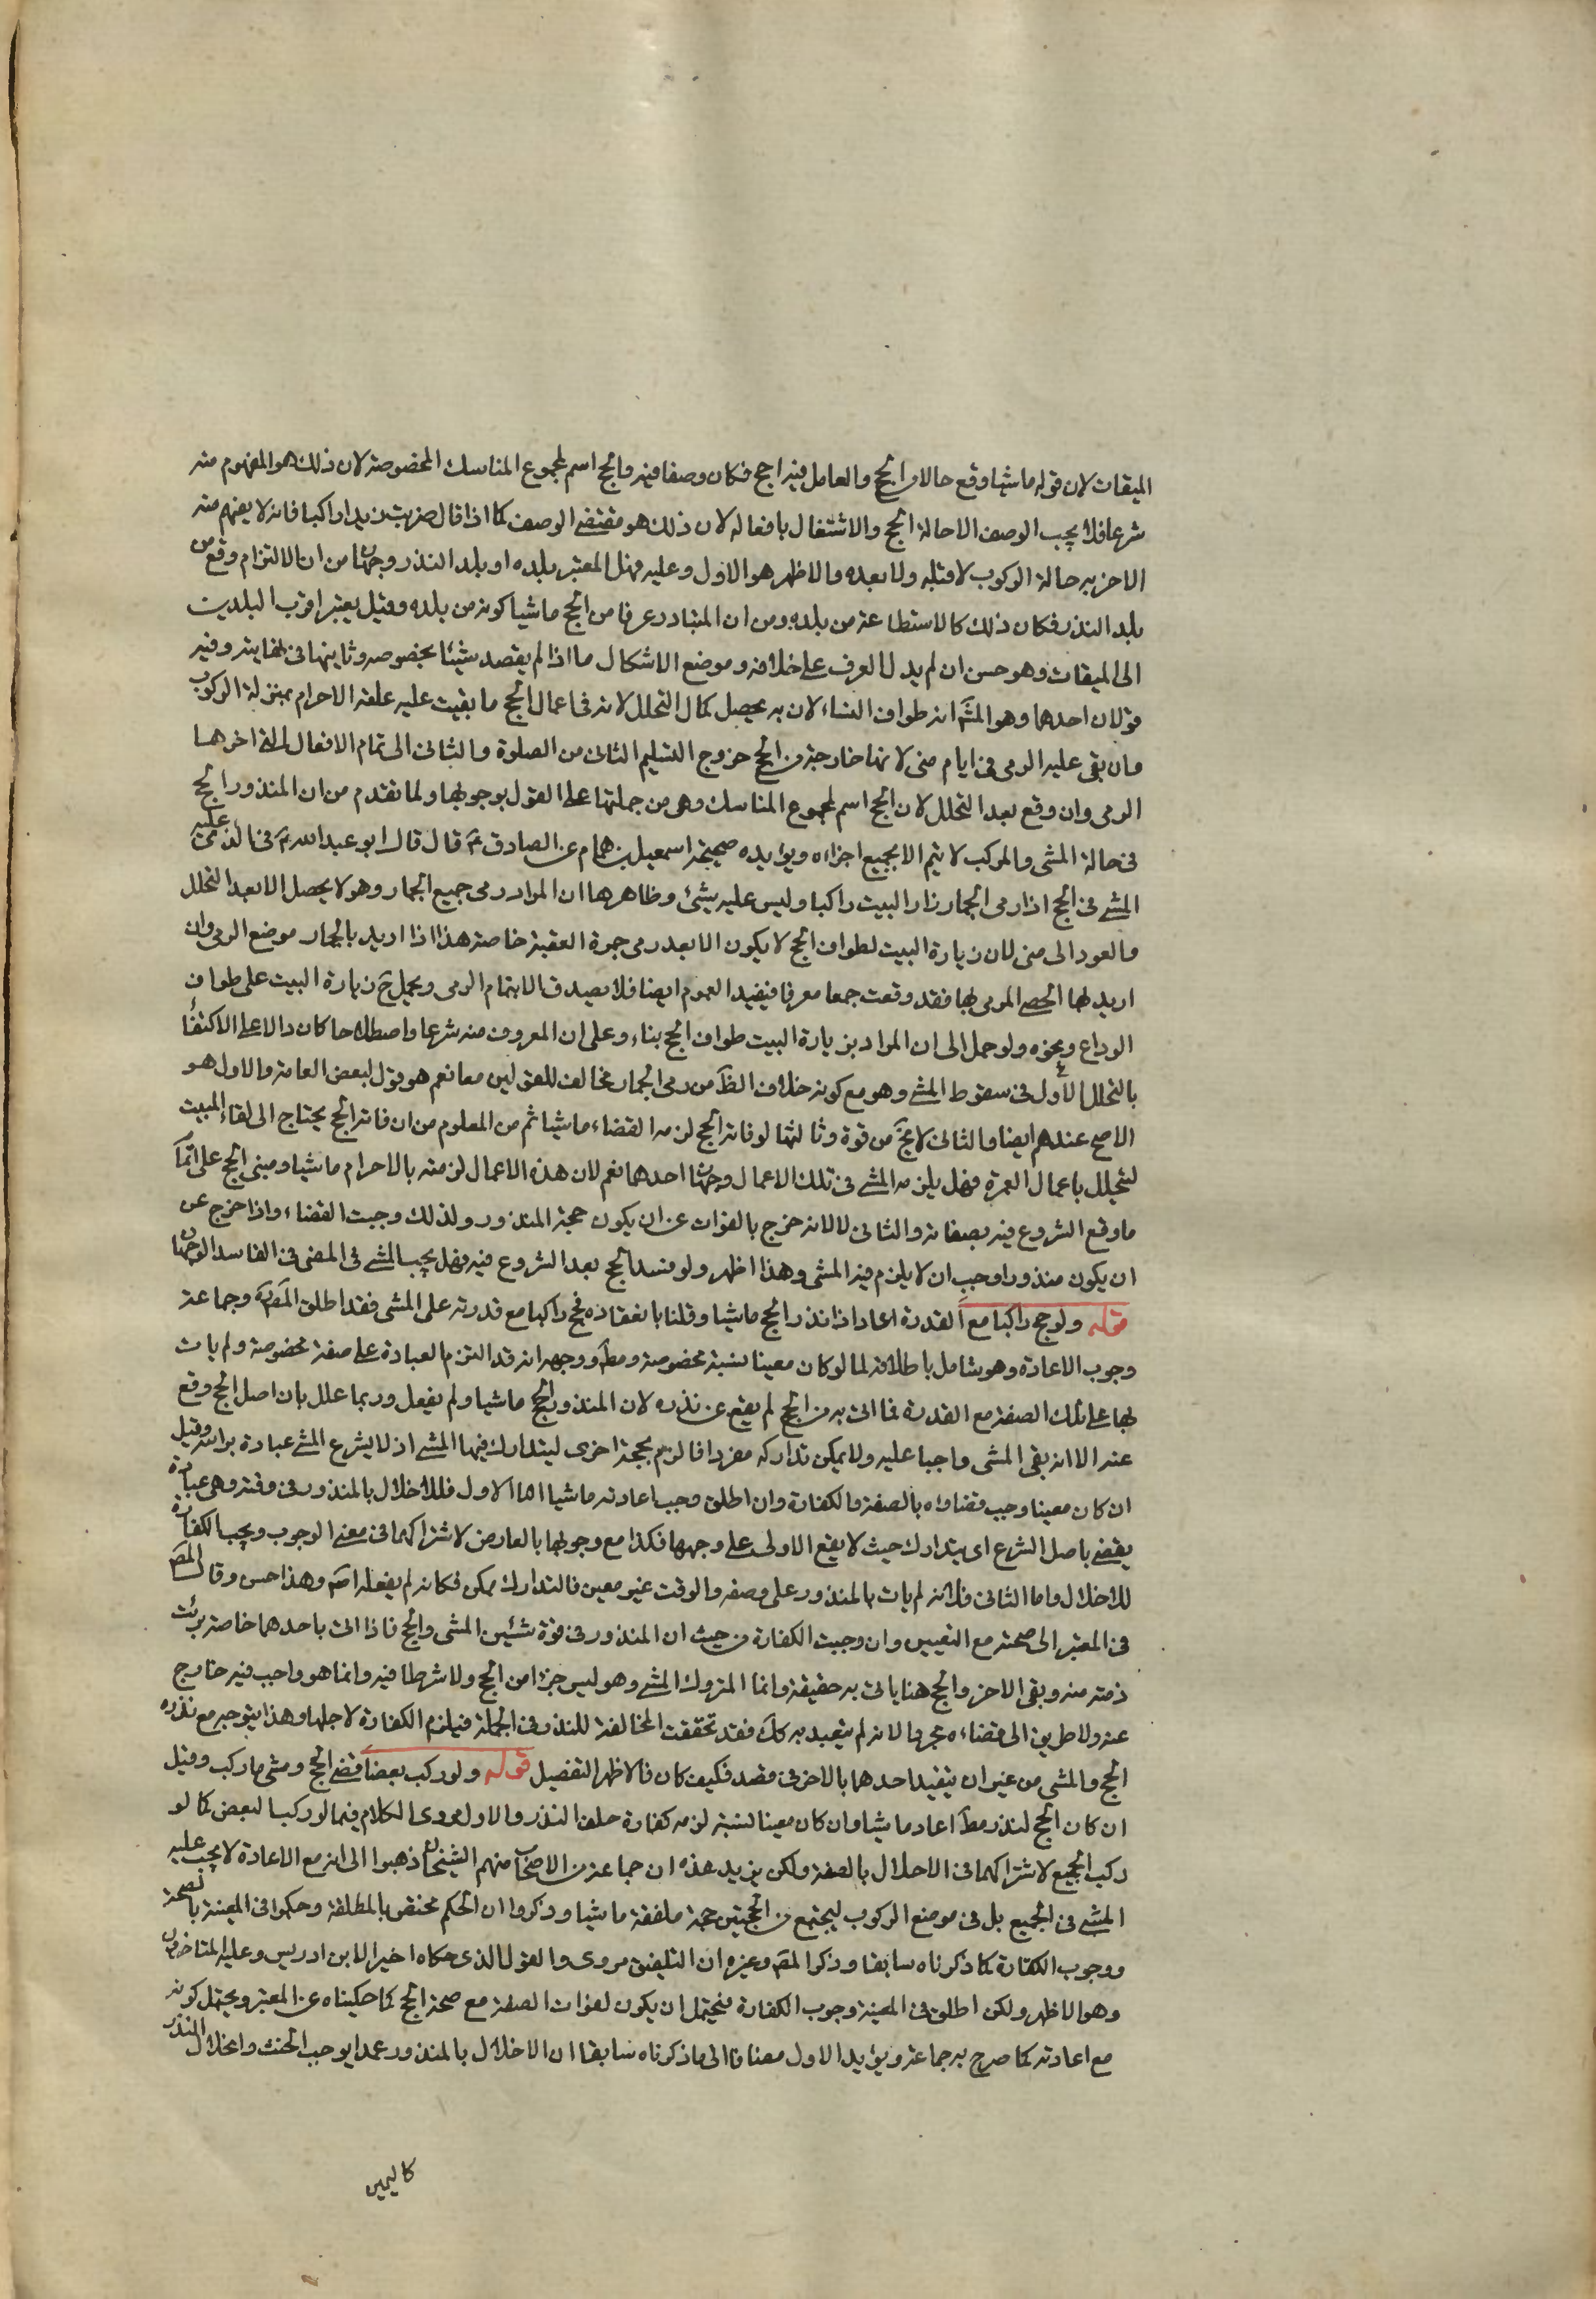 الميقات لان قوله ماشيا وقع حالا من الحج والعامل فيه احج فكان وصفا فيه والحج اسم لمجموع المناسك المخصوصة لان ذلك هو المفهوم منه
شرعا فلا يجب الوصف الا حالة الحج والاشتغال بافعاله لان ذلك هو مقتضى الوصف كما اذا قال ضربت زيدا راكبا فانه لا يفهم منه
الا ضربه حالة الركوب لا قبله ولا بعده والاظهر هو الاول وعليه فهل المعتبر بلده او بلد النذر وجهان من ان الالتزام وقع من
بلد النذر فكان ذلك كالاستطاعة من بلده ومن ان المتبادر عرفا من الحج ماشيا كونه من بلده وقيل يعتبر اقرب البلدين
الى الميقات وهو حسن ان لم يدل العرف على خلافه وموضع الاشكال ما اذا لم يقصد شيئا بخصوصه وثانيها في نهايته وفيه
قولان احدهما وهو المشهـ انه طواف النساء لان به يحصل كمال التحلل لانه في اعمال الحج ما بقيت عليه علقة الاحرام بمنزلة الركوب
وان بقي عليه الرمي في ايام منى لانها خارجة من الحج خروج التسليم الثاني من الصلوة والثاني الى تمام الافعال التي اخرها
الرمي وان وقع بعد التحلل لان الحج اسم لمجموع المناسك وهي من جملتها على القول بوجوبها ولما تقدم من ان المنذور الحج
في حالة المشي والمركب لا يتم الا بجميع اجزائه ويؤيده صحيحة اسمعيل بن همام عن الصادق ع قال قال ابو عبد الله ع في الذي عليه
المشي في الحج اذا رمى الجمار زار البيت راكبا وليس عليه شئ وظاهرها ان المراد رمي جميع الجمار وهو لا يحصل الا بعد التحلل
والعود الى منى لان زيارة البيت لطواف الحج لا يكون الا بعد رمي جمرة العقبة خاصة هذا اذا اريد بالجمار موضع الرمي وان
اريد بها الحصى المرمي بها فقد وقعت جمعا معرفا فيفيد العموم ايضا فلا يصدق الا بتمام الرمي ويحمل ح زيارة البيت على طواف
الوداع ونحوه ولو حمل الى ان المراد بزيارة البيت طواف الحج بناء وعلى ان المعروف منه شرعا واصطلاحا كان دالا على الاكتفاء
بالتحلل الاول في سقوط المشي وهو مع كونه خلاف الظ من رمي الجمار مخالف للقولين معا نعم هو قول لبعض العامة والاول هو
الاصح عندهم ايضا والثاني لا يخ من قوة وثالثها لو فاته الحج لزمه القضاء ماشيا ثم من المعلوم من ان فائت الحج يحتاج الى لقاء البيت
ليتحلل باعمال العمرة فهل يلزمه المشي في تلك الاعمال وجهان احدهما نعم لان هذه الاعمال لزمته بالاحرام ماشيا ومبنى الحج على اتمام
ما وقع الشروع فيه بصفاته والثاني لا لانه خرج بالفوات عن ان يكون حجة المنذور ولذلك وجبت القضاء واذا خرج عن
ان يكون منذورا وجب ان لا يلزم فيه المشي وهذا اظهر ولو فسد الحج بعد الشروع فيه فهل يجب المشي في المضي في الفاسد الوجهان
قوله ولو حج راكبا مع القدرة اعاد اذا نذر الحج ماشيا وقلنا بانعقاده فحج راكبا مع قدرته على المشي فقد اطلق المصـ وجماعة
وجوب الاعادة وهو شامل باطلاقه لما لو كان معينا بسنة مخصوصة ومط ووجهه انه قد التزم العبادة على صفة مخصوصة ولم يات
بها على تلك الصفة مع القدرة فما اتى به من الحج لم يقع عن نذره لان المنذور الحج ماشيا ولم يفعل وربما علل بان اصل الحج وقع
عنه الا انه بقي المشي واجبا عليه ولا يمكن تداركه مفردا فالزم بحجة اخرى ليتدارك فيها المشي اذ لا يشرع المشي عبادة براسه وقيل
ان كان معينا وجب قضاؤه بالصفة والكفارة وان اطلق وجب اعادته ماشيا اما الاول فللاخلال بالمنذور في وقته وهي عبادة
يقضى باصل الشرع اي يتدارك حيث لا يقع الاولى على وجهها فكذا مع وجوبها بالعارض لاشتراكهما في معنى الوجوب ويجب الكفارة
للاخلال واما الثاني فلانه لم يات بالمنذور على وصفه والوقت غير معين فالتدارك ممكن فكانه لم يفعله اصـ وهذا حسن وقال المصـ
في المعتبر الى صحته مع التعيين وان وجبت الكفارة من حيث ان المنذور في قوة شيئين المشي والحج فاذا اتى باحدهما خاصة برئت
ذمته منه وبقي الاخر والحج هنا ياتي به حقيقة وانما المتروك المشي وهو ليس جزءا من الحج ولا شرطا فيه وانما هو واجب فيه خارج
عنه ولا طريق الى قضاءه مجردا لانه لم يتعبد به كك فقد تحققت المخالفة للنذر في الجملة فيلزم الكفارة لاجلها وهذا يتوجه مع نذره
الحج والمشي من غير ان يتقيد احدهما بالاخر في قصد فكيف كان فالاظهر التفصيل قوله ولو ركب بعضا قضى الحج ومشى ما ركب وقيل
ان كان الحج لنذر مط اعاد ماشيا وان كان معينا لسنة لزمه كفارة خلف النذر والاول مروى الكلام فيما لو ركب البعض كما لو
ركب الجميع لاشتراكهما في الاخلال بالصفة ولكن يزيد هذه ان جماعة من الاصحاب منهم الشيخان ذهبوا الى انه مع الاعادة لا يجب عليه
المشي في الجميع بل في موضع الركوب ليجتمع من الحجتين حجة ملفقة ماشيا وذكروا ان الحكم مختص بالمطلقة وحكموا في المعينة بالصحة
ووجوب الكفارة كما ذكرناه سابقا وذكر المصـ وغيره ان التلفيق مروى والقول الذي حكاه اخيرا لابن ادريس وعليه المتاخرون
وهو الاظهر ولكن اطلق في المعينة وجوب الكفارة فيحتمل ان يكون لفوات الصفة مع صحة الحج كما حكيناه عن المعتبر ويحتمل كونه
مع اعادته كما صرح به جماعة ويؤيد الاول مضافا الى ما ذكرناه سابقا ان الاخلال بالمنذور عمدا يوجب الحنث وانحلال النذر
كاليمين